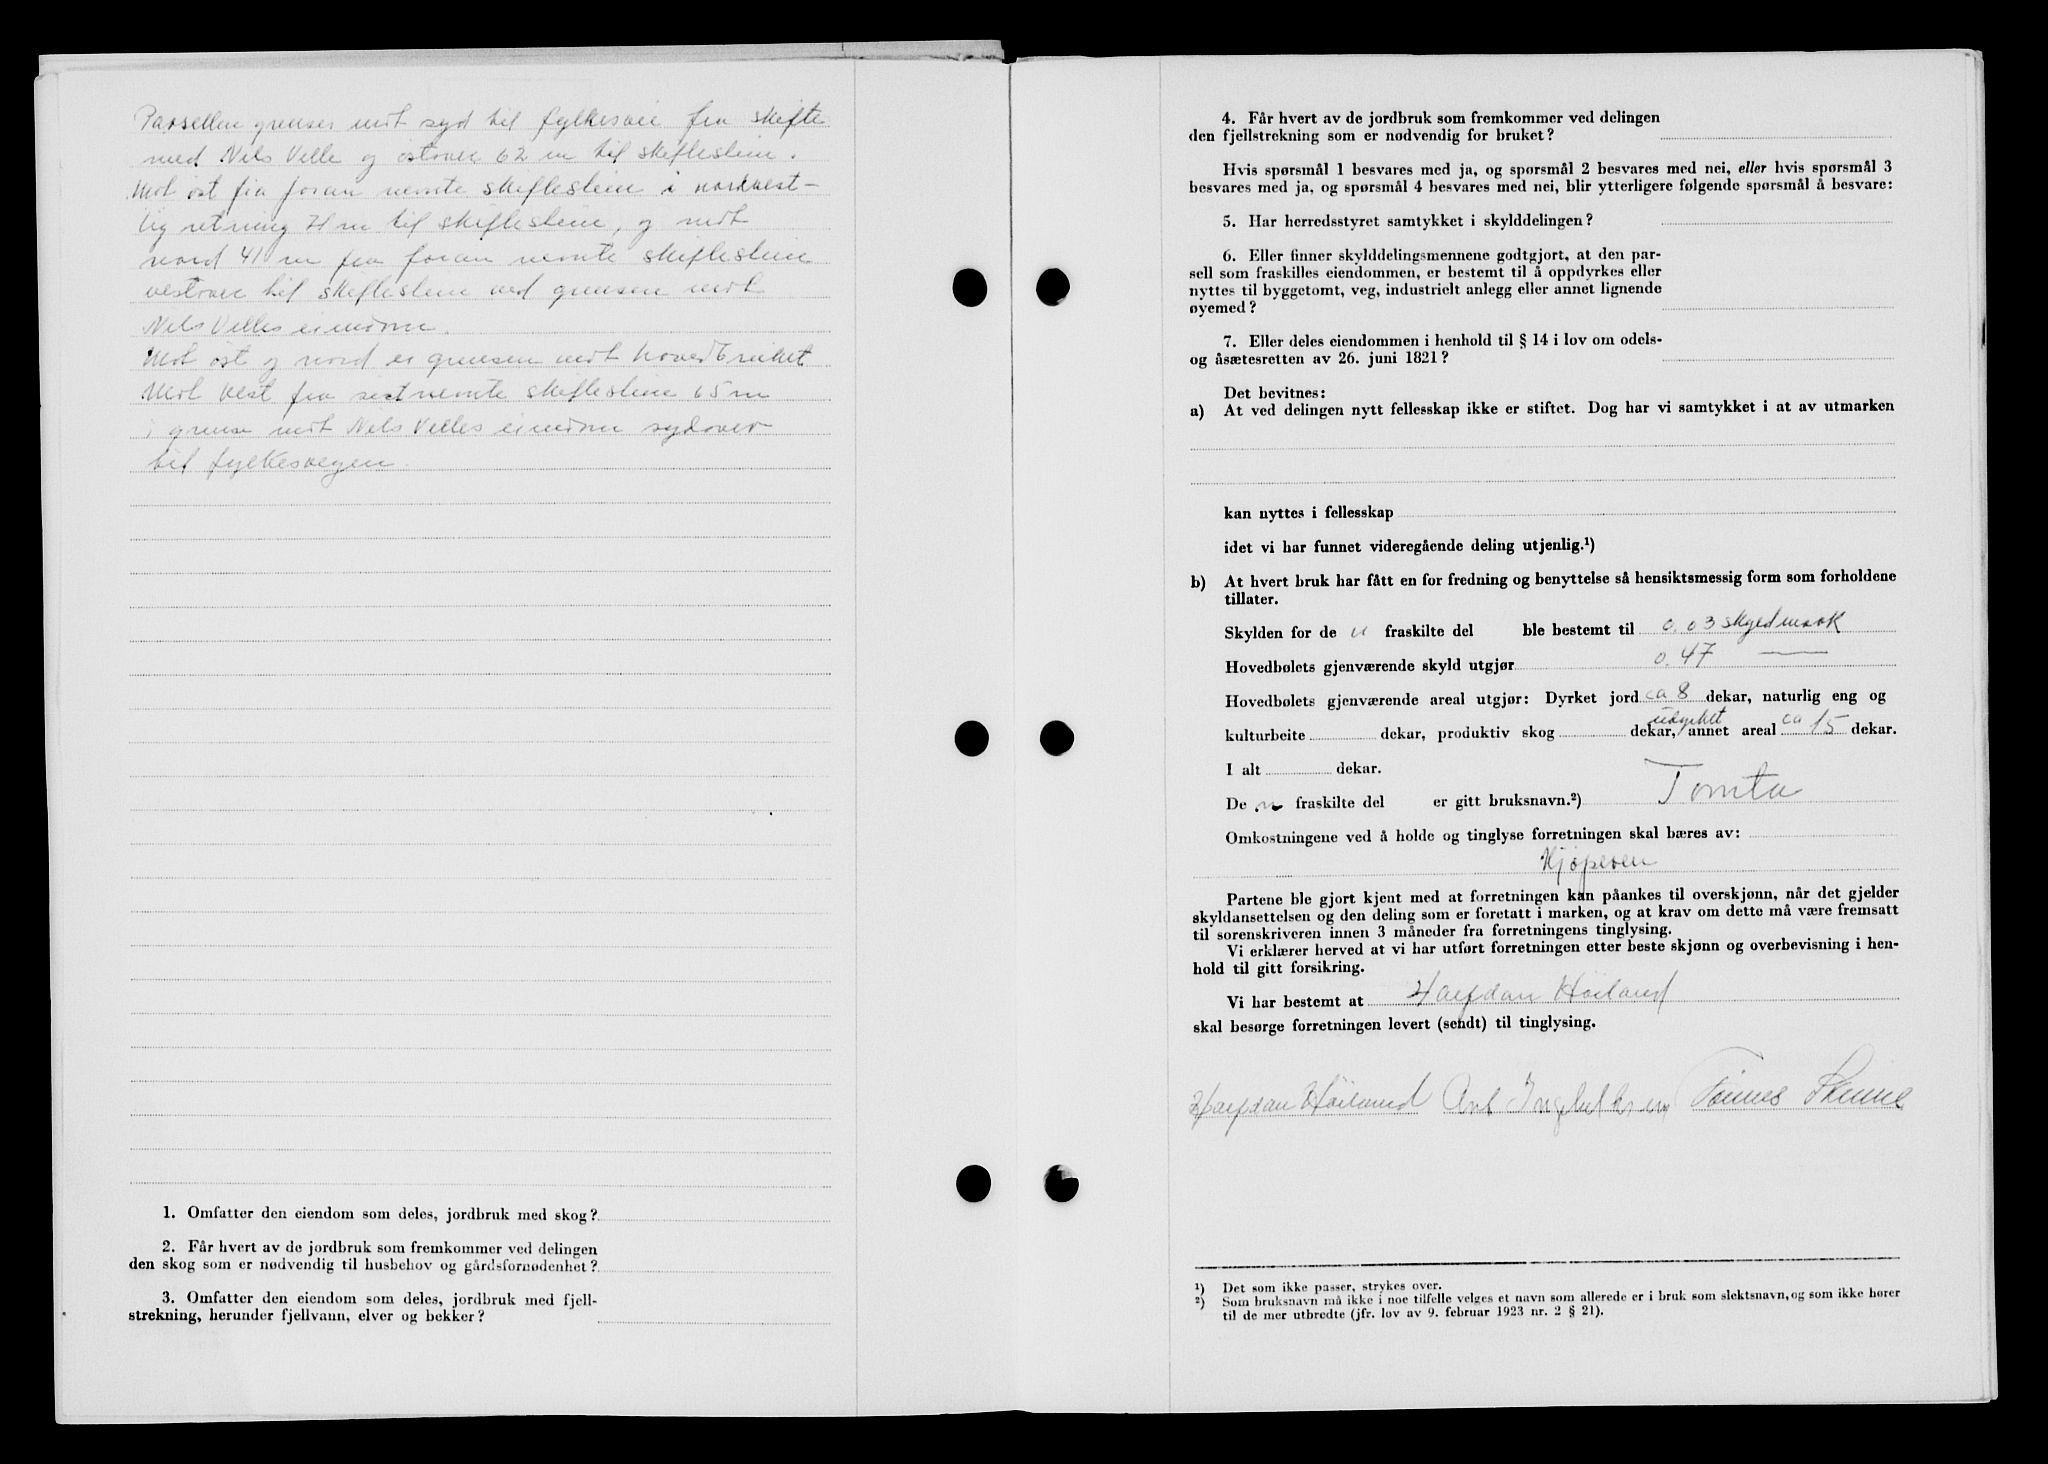 Parsellen grenser mot syd til fylkesvei fra skifte
med Nils Velle og østover 62 m til skiftestein.
Mot øst fra foran nevnte skiftestein i nordvest-
lig retning 71 m til skiftestein, og mot
nord 41 m fra foran nevnte skiftestein
vestover til skiftestein ved grensen mot
Nils Velles eiendom.
Mot øst og nord er grensen mot hovedbruket
Mot vest fra sistnevnte skiftestein 65 m
i grense mot Nils Velles eiendom sydover
til fylkesvegen.
1. Omfatter den eiendom som deles, jordbruk med skog?
2. Får hvert av de jordbruk som fremkommer ved delingen
den skog som er nødvendig til husbehov og gårdsfornødenhet?
3. Omfatter den eiendom som deles, jordbruk med fjell-
strekning, herunder fjellvann, elver og bekker?
4. Får hvert av de jordbruk som fremkommer ved delingen
den fjellstrekning som er nødvendig for bruket?
Hvis spørsmål 1 besvares med ja, og spørsmål 2 besvares med nei, eller hvis spørsmål 3
besvares med ja, og spørsmål 4 besvares med nei, blir ytterligere følgende spørsmål å besvare:
5. Har herredsstyret samtykket i skylddelingen?
6. Eller finner skylddelingsmennene godtgjort, at den par-
sell som fraskilles eiendommen, er bestemt til å oppdyrkes eller
nyttes til byggetomt, veg, industrielt anlegg eller annet lignende
øyemed?
7. Eller deles eiendommen i henhold til § 14 i lov om odels-
og åsætesretten av 26. juni 1821?
Det bevitnes:
a) At ved delingen nytt fellesskap ikke er stiftet. Dog har vi samtykket i at av utmarken
kan nyttes i fellesskap
idet vi har funnet videregående deling utjenlig.¹)
b) At hvert bruk har fått en for fredning og benyttelse så hensiktsmessig form som forholdene
tillater.
Skylden for de n fraskilte del ble bestemt til 0.03 skyldmark
Hovedbølets gjenværende skyld utgjør 0.47 —
Hovedbølets gjenværende areal utgjør: Dyrket jord ca 8 dekar, naturlig eng og
kulturbeite dekar, produktiv skog dekar, udyrket annet areal ca 15 dekar.
I alt dekar.
De n fraskilte del er gitt bruksnavn.²) Tomta
Omkostningene ved å holde og tinglyse forretningen skal bæres av:
Kjøperen
Partene ble gjort kjent med at forretningen kan påankes til overskjønn, når det gjelder
skyldansettelsen og den deling som er foretatt i marken, og at krav om dette må være fremsatt
til sorenskriveren innen 3 måneder fra forretningens tinglysing.
Vi erklærer herved at vi har utført forretningen etter beste skjønn og overbevisning i hen-
hold til gitt forsikring.
Vi har bestemt at Halfdan Høiland
skal besørge forretningen levert (sendt) til tinglysing.
Halfdan Høiland Tønnes
¹) Det som ikke passer, strykes over.
²) Som bruksnavn må ikke i noe tilfelle velges et navn som allerede er i bruk som slektsnavn, og som ikke hører
til de mer utbredte (jfr. lov av 9. februar 1923 nr. 2 § 21).